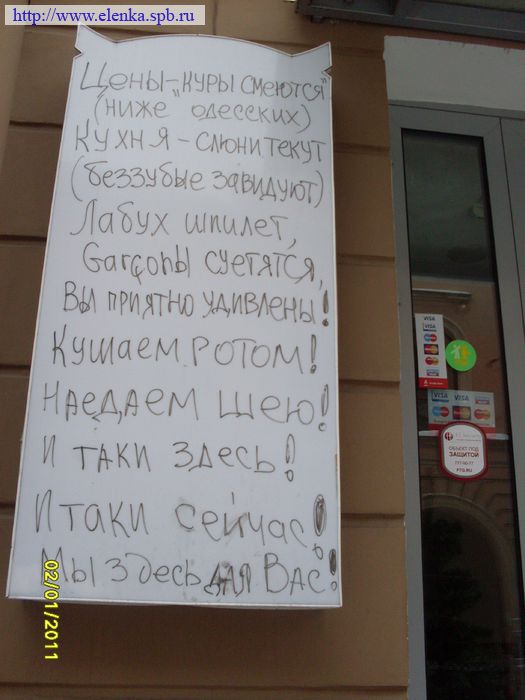 http://www.elenka.spb.ru
Цены-„куры смеются"
(ниже одесских)
Кухня - слюни текут
(беззубые завидуют)
Лабух шпилет,
Garçonы суетятся,
Вы приятно удивлены!
Кушаем ротом!
Наедаем шею!
И таки здесь!
И таки сейчас!
Мы здесь для Вас!
VISA
VISA
VISA
ОБЪЕКТ ПОД
ЗАЩИТОЙ
02/01/2011